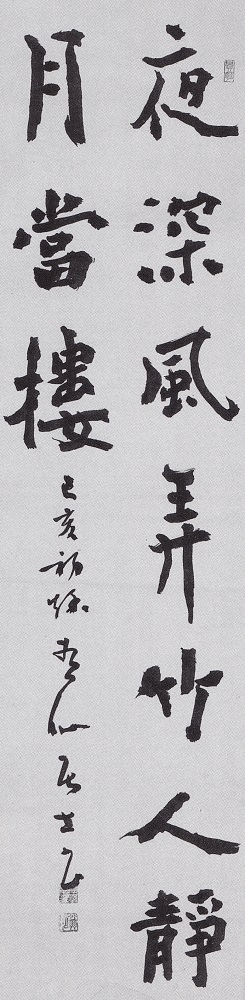 夜深風弄竹人靜
月當樓
己亥初秋 居士